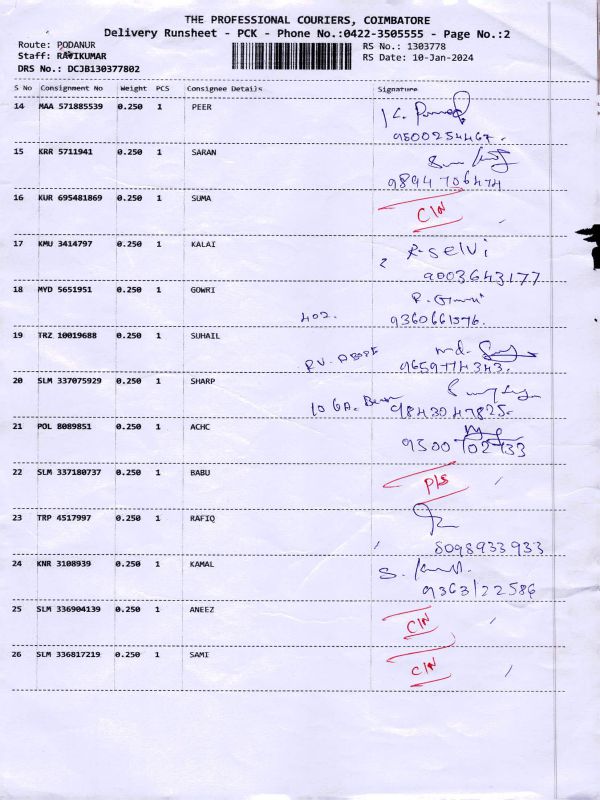 THE PROFESSIONAL COURIERS, COIMBATORE
Delivery Runsheet - PCK - Phone No.:0422-3505555 - Page No.:2
Route: PODANUR
RS No.: 1303778
Staff: RAVIKUMAR
RS Date: 10-Jan-2024
DRS No.: DCJB130377802
S No Consignment No Weight PCS Consignee Details Signature
14 MAA 571885539 0.250 1 PEER
9500254467.
15 KRR 5711941 0.250 1 SARAN
9894706474
16 KUR 695481869 0.250 1 SUMA C/N
17 KMU 3414797 0.250 1 KALAI R-selvi
9003643177
18 MYD 5651951 0.250 1 GOWRI
402. 9360661576.
19 TRZ 10019688 0.250 1 SUHAIL md.
RV. 9659774343.
20 SLM 337075929 0.250 1 SHARP
9843047825.
21 POL 8089851 0.250 1 ACHC
9500702733
22 SLM 337180737 0.250 1 BABU P/S
23 TRP 4517997 0.250 1 RAFIQ
8098933933
24 KNR 3108939 0.250 1 KAMAL
9363122586
25 SLM 336904139 0.250 1 ANEEZ C/N
26 SLM 336817219 0.250 1 SAMI C/N